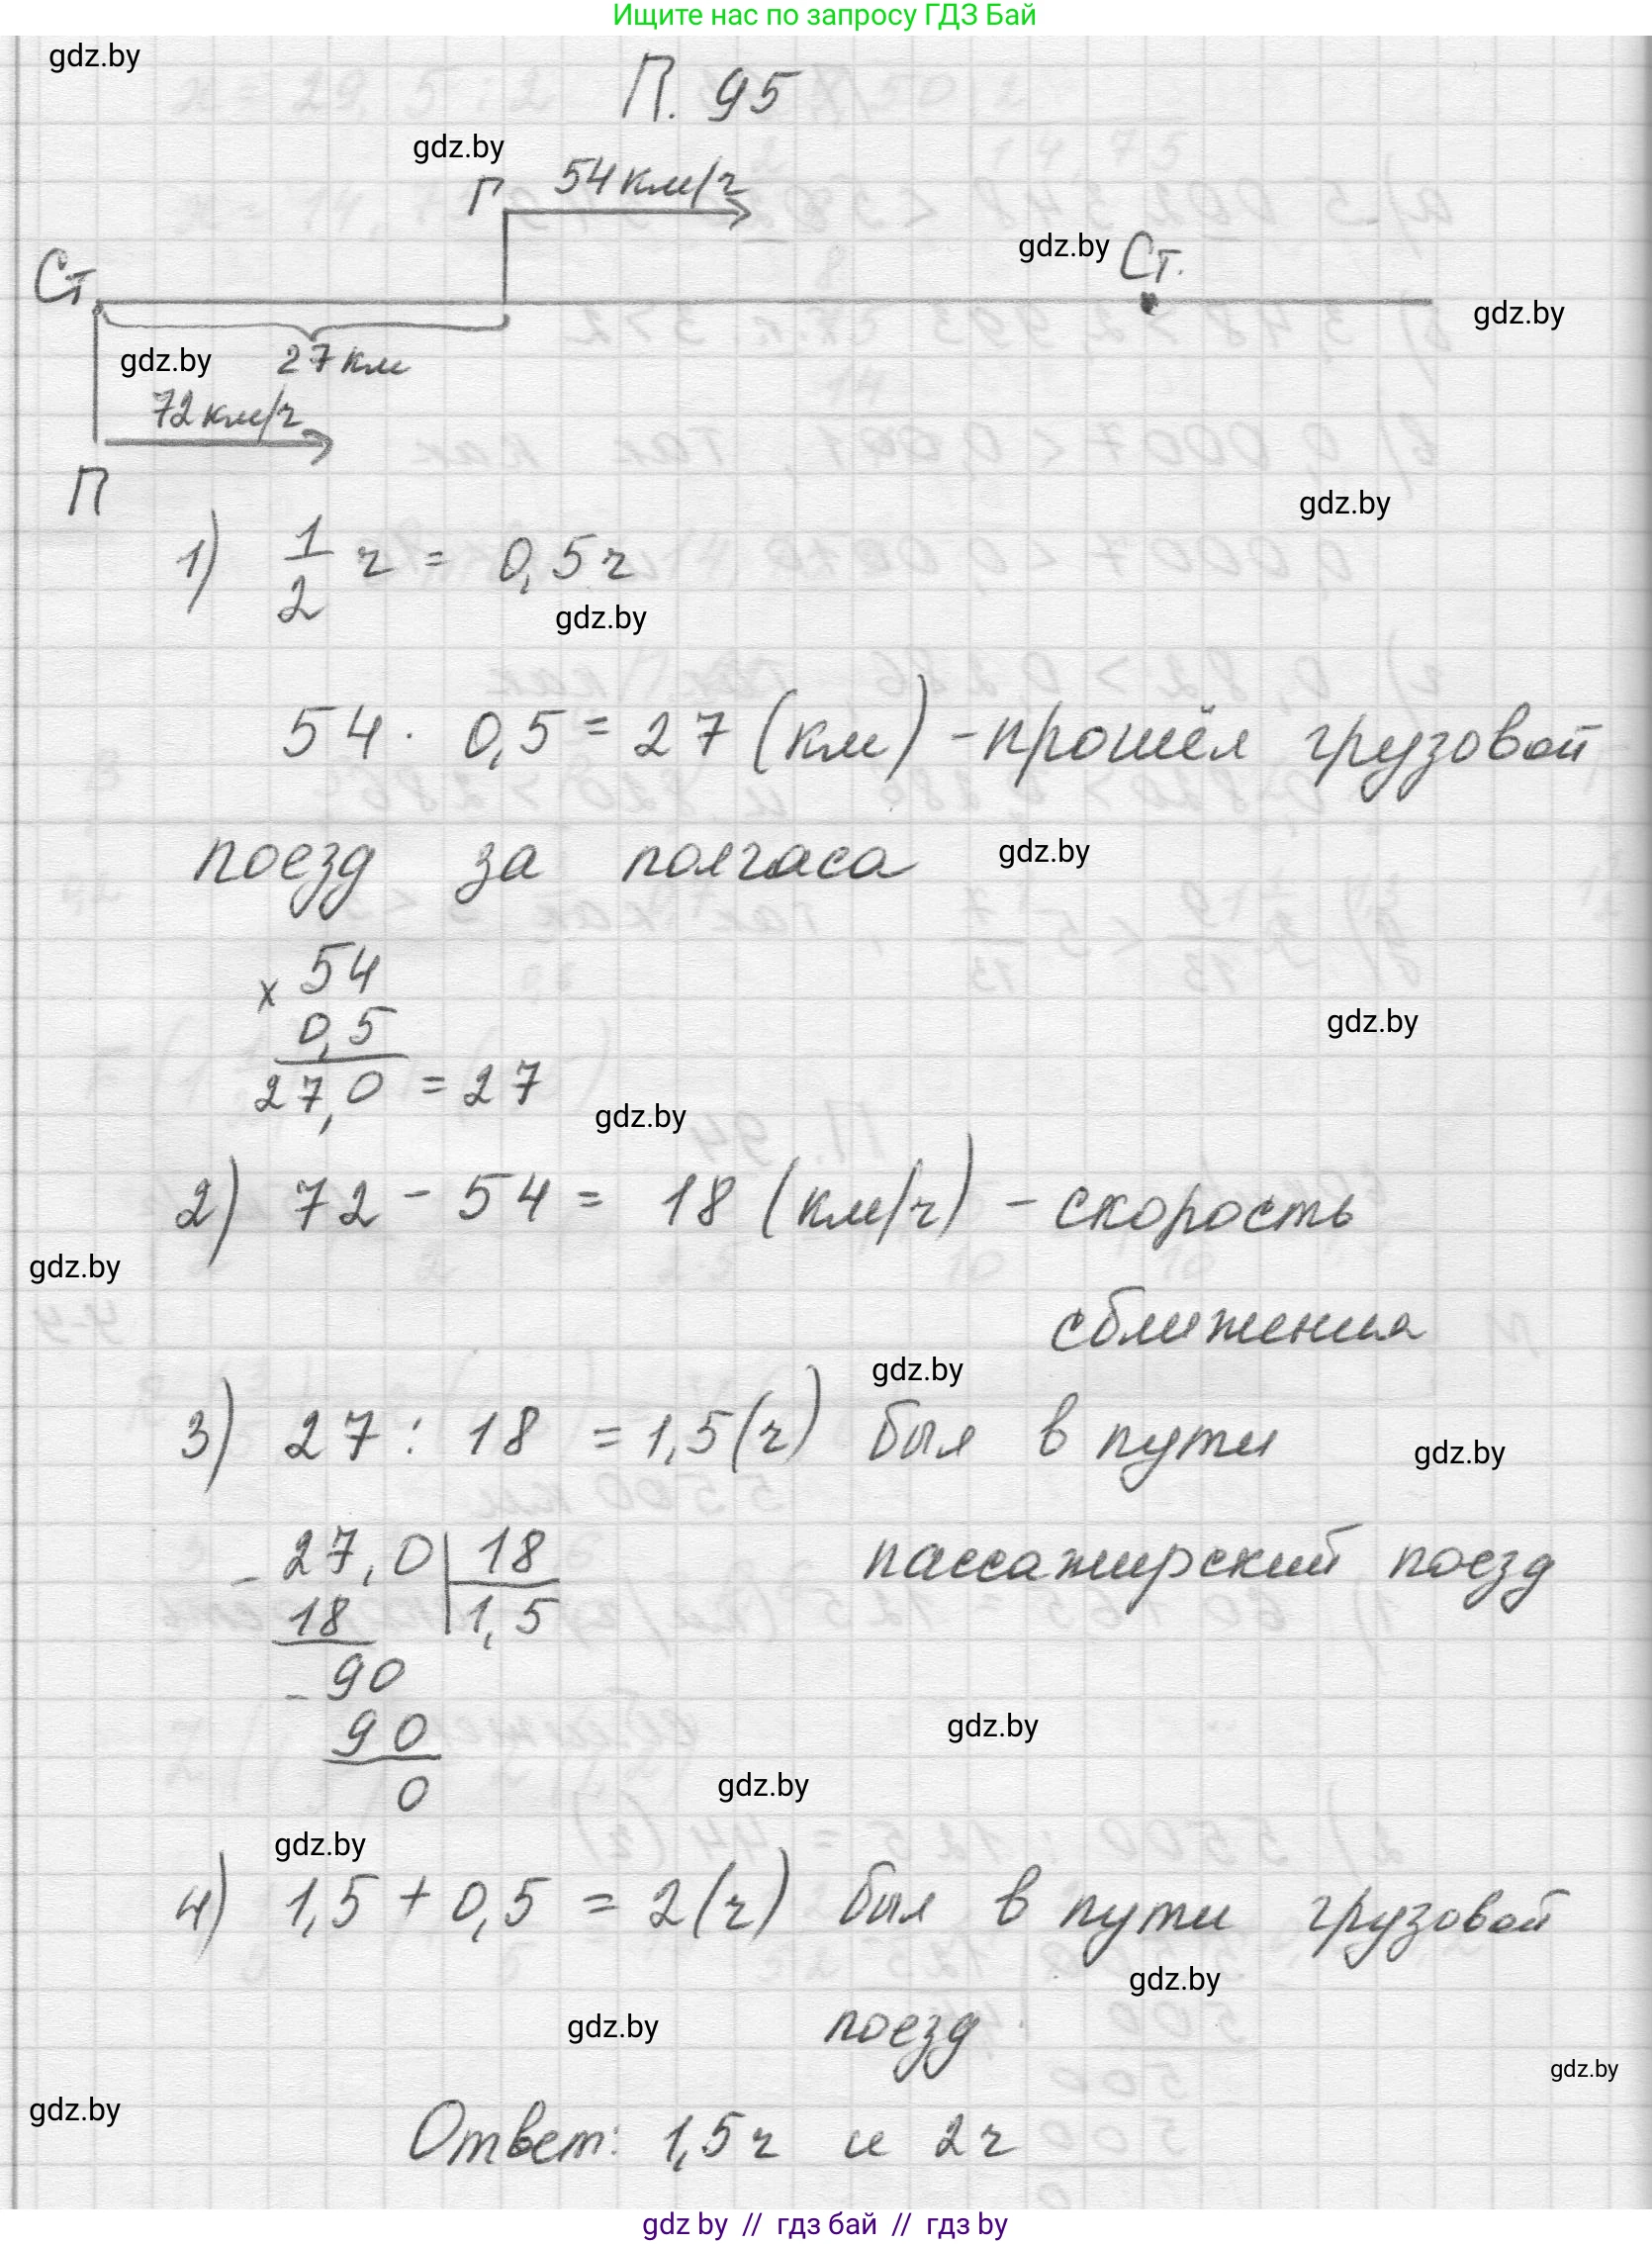 Ищите нас по запросу ГДЗ Бай
gdz.by
П. 95
gdz.by
Г 54 км/ч
gdz.by Ст.
Ст
gdz.by
gdz.by 27 км
72 км/ч
П
gdz.by
1) 1/2 ч = 0,5 ч
gdz.by
54 · 0,5 = 27 (км) - прошёл грузовой
поезд за полчаса gdz.by
× 54
0,5
gdz.by
27,0 = 27
gdz.by
2) 72 - 54 = 18 (км/ч) - скорость
gdz.by
сближения
gdz.by
3) 27 : 18 = 1,5 (ч) был в пути
gdz.by
- 27,0 | 18 пассажирский поезд
18 1,5
- 90
90
gdz.by
0
gdz.by
gdz.by
4) 1,5 + 0,5 = 2 (ч) был в пути грузовой
gdz.by
gdz.by поезд
gdz.by
gdz.by
Ответ: 1,5 ч и 2 ч
gdz by // гдз бай // гдз by